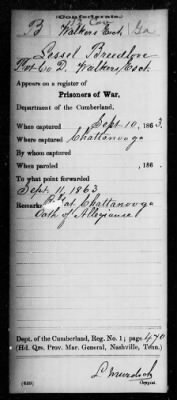 (Confederate.)
B Walkers Cav. Ga
Lessel Breedlove
Pvt Co D. Walkers Esct.
Appears on a register of
Prisoners of War,
Department of the Cumberland.
When captured Sept 10, 1863.
Where captured Chattanooga
By whom captured
When paroled , 186 .
To what point forwarded
Sept. 11, 1863
Remarks: at Chattanooga
Oath of Allegiance
Dept. of the Cumberland, Reg. No. 1; page 470
(Hd. Qrs. Prov. Mar. General, Nashville, Tenn.)
L Murdock
(639) Copyist.